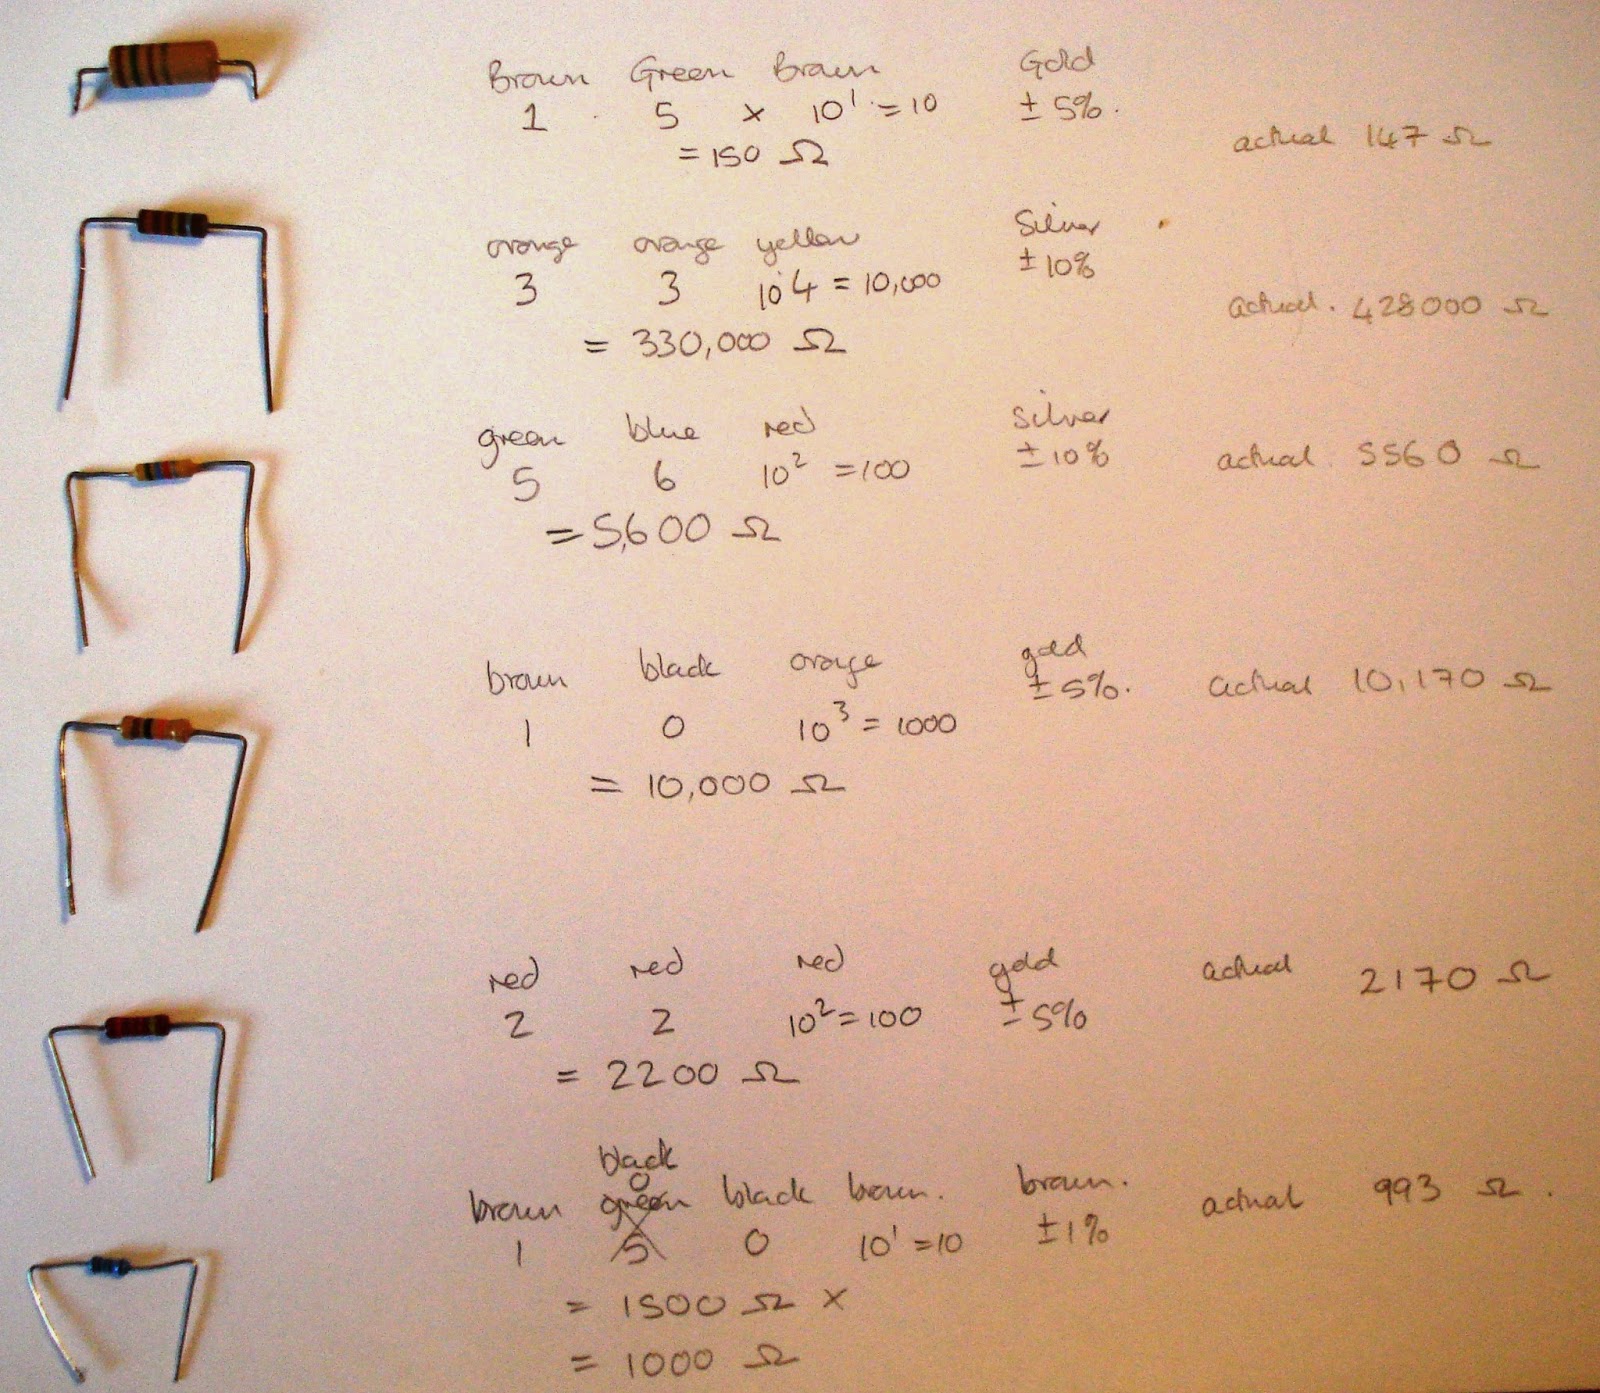 Brown Green Brown Gold
1 5 x 10¹ = 10 ± 5%.
= 150 Ω
actual 147 Ω
orange orange yellow Silver
3 3 10⁴ = 10,000 ± 10%
= 330,000 Ω
actual. 428000 Ω
green blue red silver
5 6 10² = 100 ± 10%
actual 5560 Ω
= 5,600 Ω
brown black orange gold
± 5%. actual 10,170 Ω
1 0 10³ = 1000
= 10,000 Ω
red red red gold actual 2170 Ω
2 2 10² = 100 ± 5%
= 2200 Ω
black
0
brown green black brown. brown. actual 993 Ω.
1 5 0 10¹ = 10 ± 1%
= 1500 Ω x
= 1000 Ω